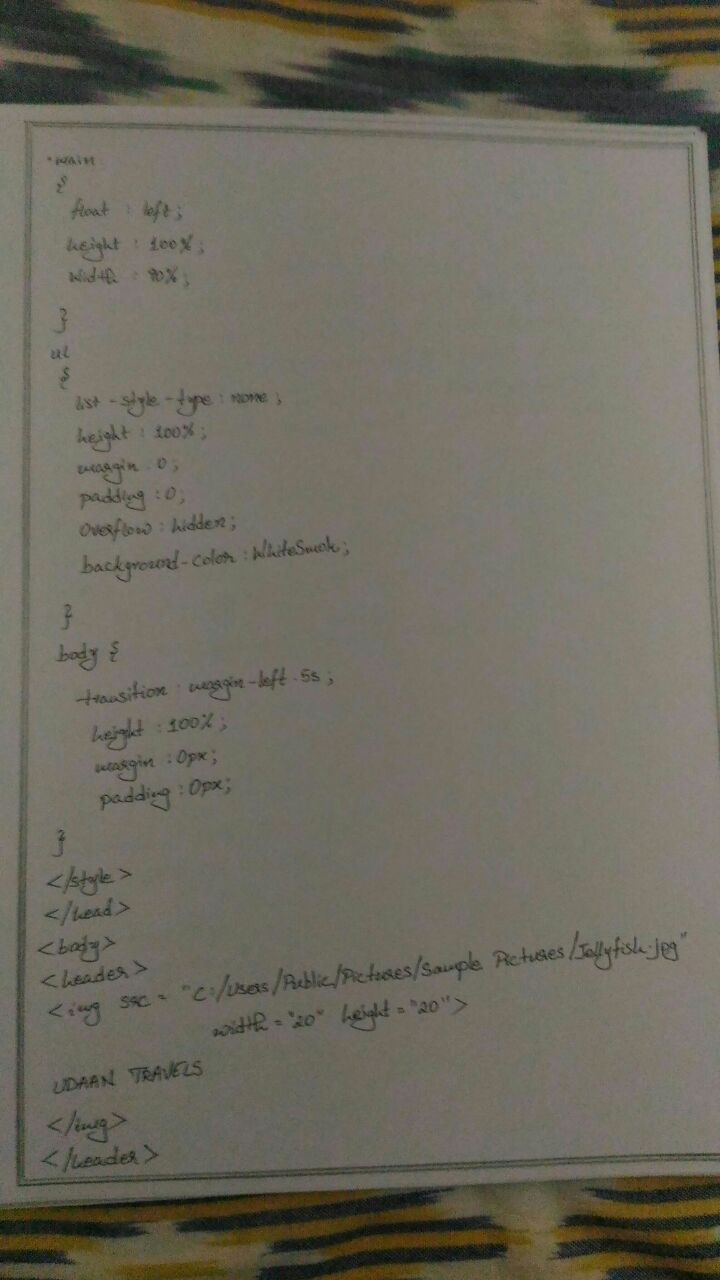 .main
{
float : left ;
height : 100% ;
width : 90% ;
}
ul
{
list-style-type : none ;
height : 100% ;
margin : 0 ;
padding : 0 ;
overflow : hidden ;
background-color : WhiteSmok ;
}
body {
transition : margin-left .5s ;
height : 100% ;
margin : 0px ;
padding : 0px ;
}
</style>
</head>
<body>
<header>
<img src = "C:/Users/Public/Pictures/Sample Pictures/Jellyfish.jpg"
width = "20" height = "20">
UDAAN TRAVELS
</img>
</header>